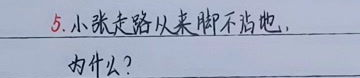 5.小张走路从来脚不沾地，
为什么？